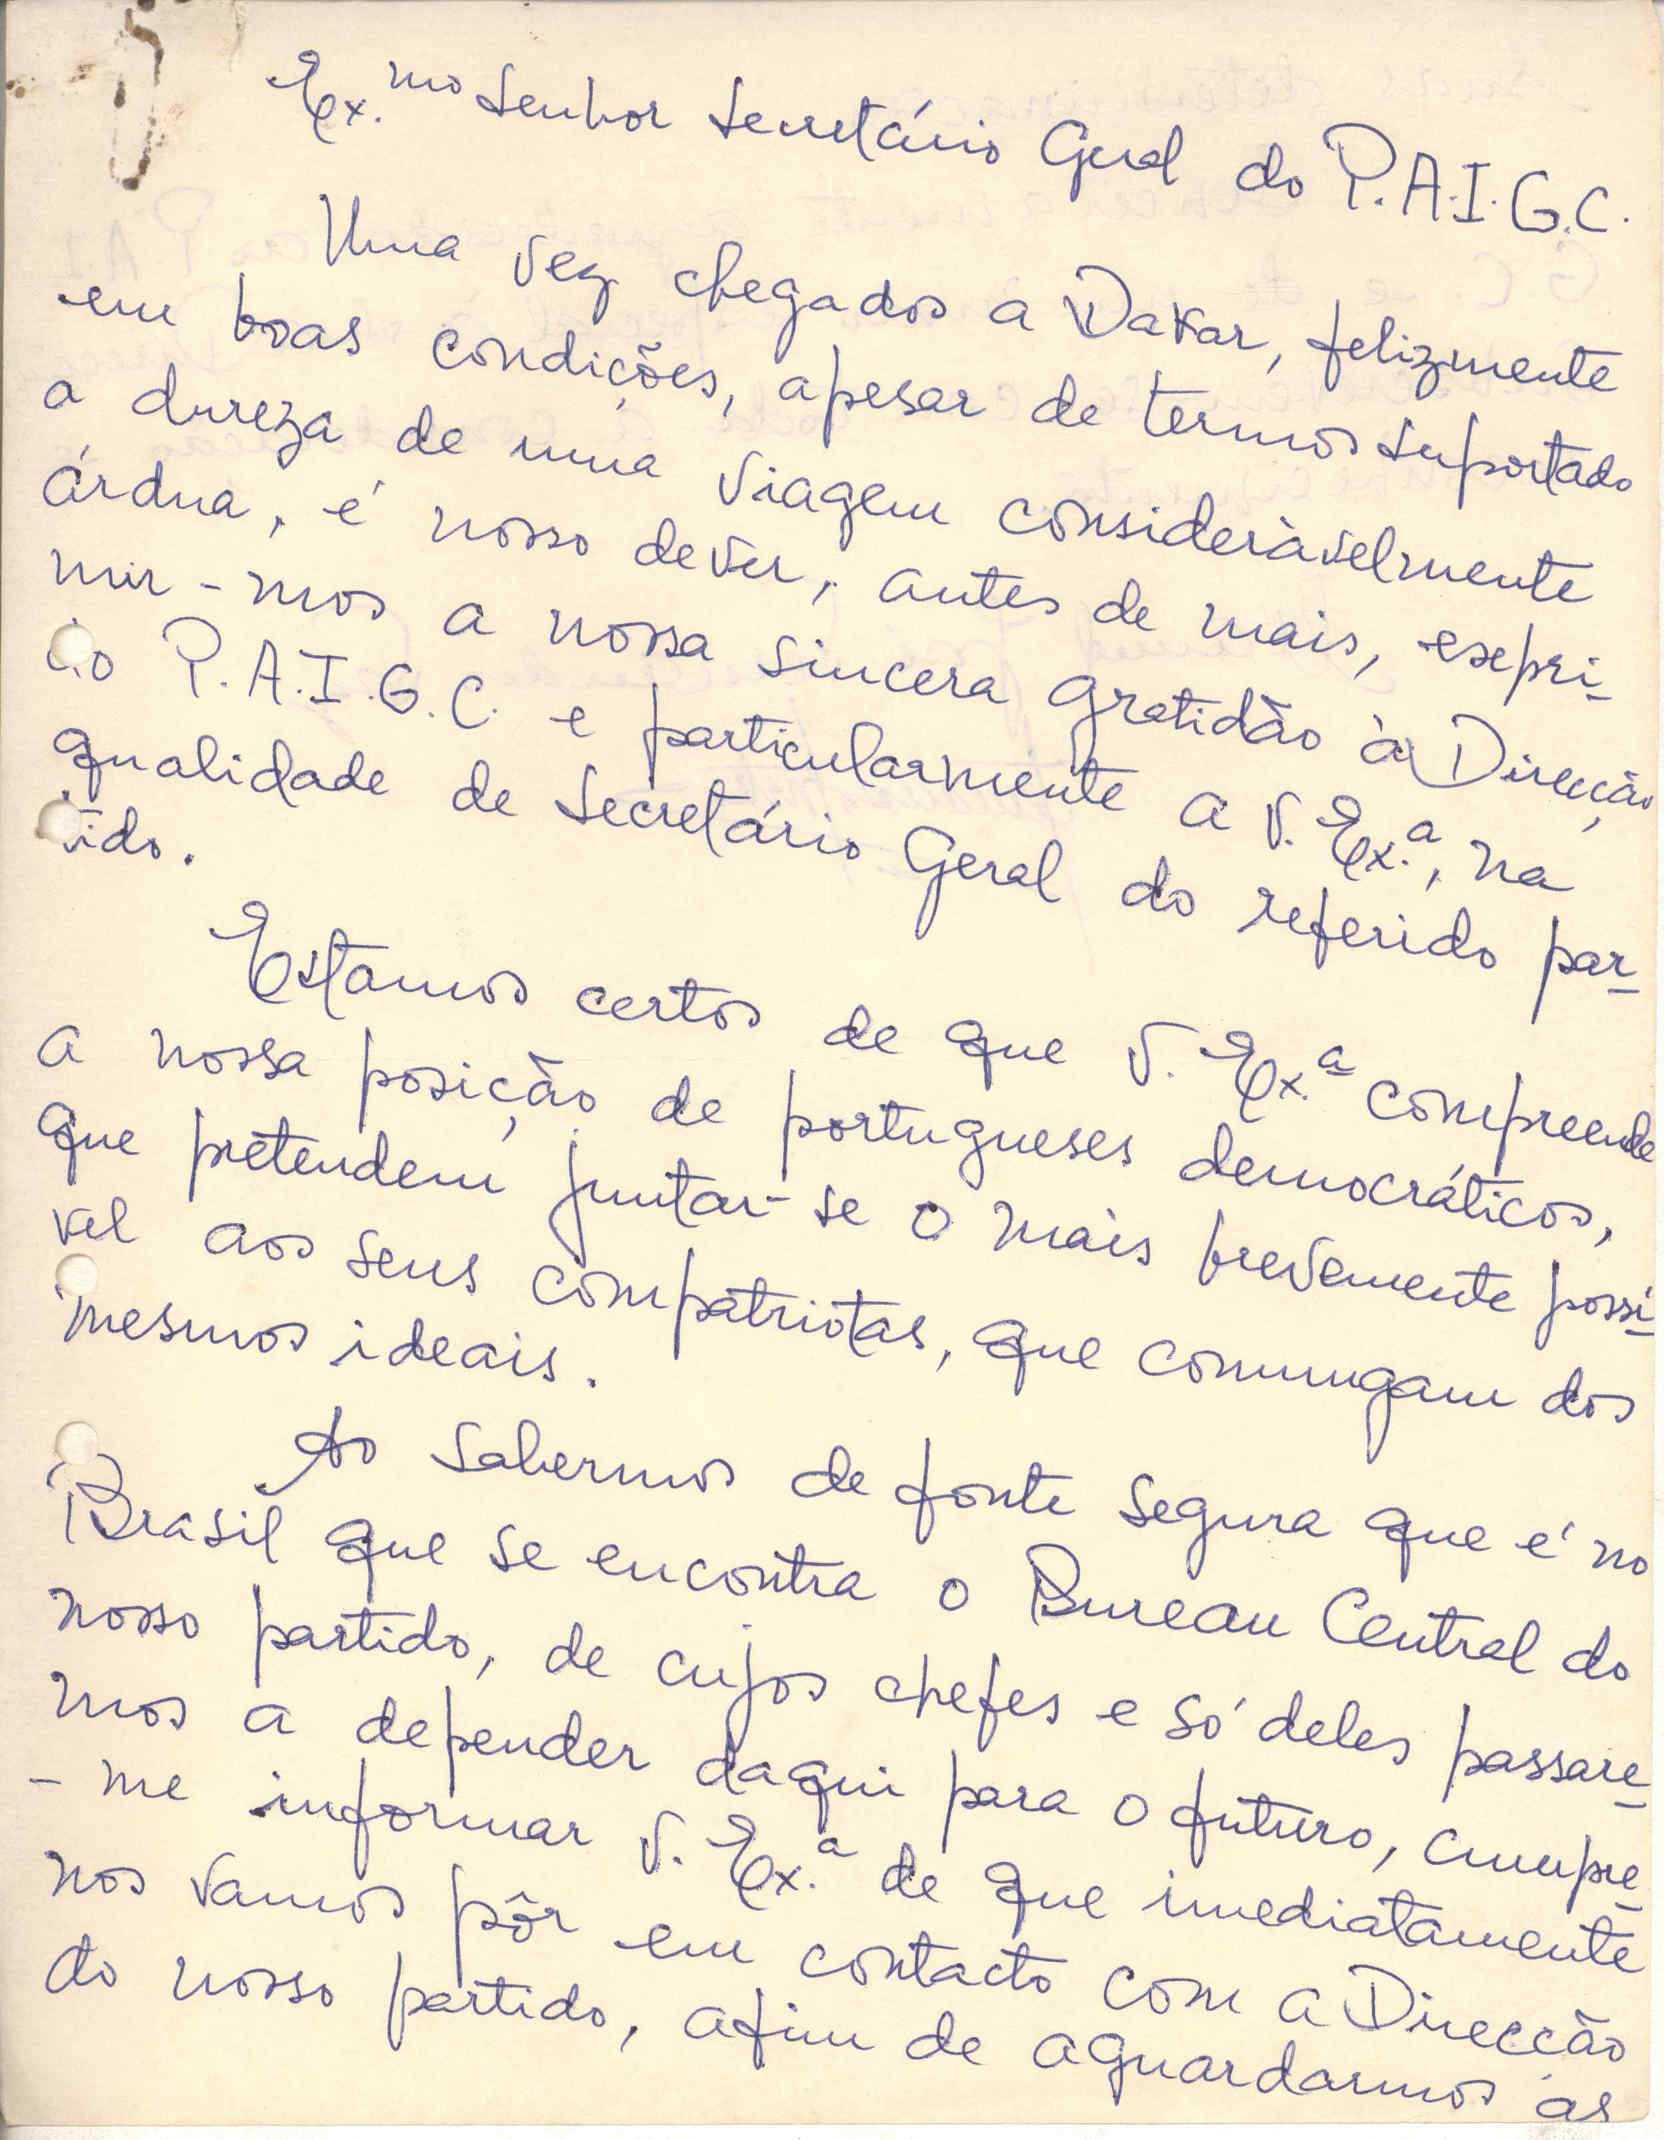 Ex.mo Senhor Secretário Geral do P.A.I.G.C.
Uma vez chegados a Dakar, felizmente
em boas condições, apesar de termos suportado
a dureza de uma viagem consideràvelmente
árdua, é nosso dever, antes de mais, expri-
mir-mos a nossa sincera gratidão à Direcção
do P.A.I.G.C. e particularmente a V. Ex.a, na
qualidade de Secretário Geral do referido par-
tido.
Estamos certos de que V. Ex.a compreende
a nossa posição de portugueses democráticos,
que pretendem juntar-se o mais brevemente possí-
vel aos seus compatriotas, que comungam dos
mesmos ideais.
Ao sabermos de fonte segura que é no
Brasil que se encontra o Bureau Central do
nosso partido, de cujos chefes e só deles passare-
mos a depender daqui para o futuro, cumpre-
-me informar V. Ex.a de que imediatamente
nos vamos pôr em contacto com a Direcção
do nosso partido, afim de aguardarmos as